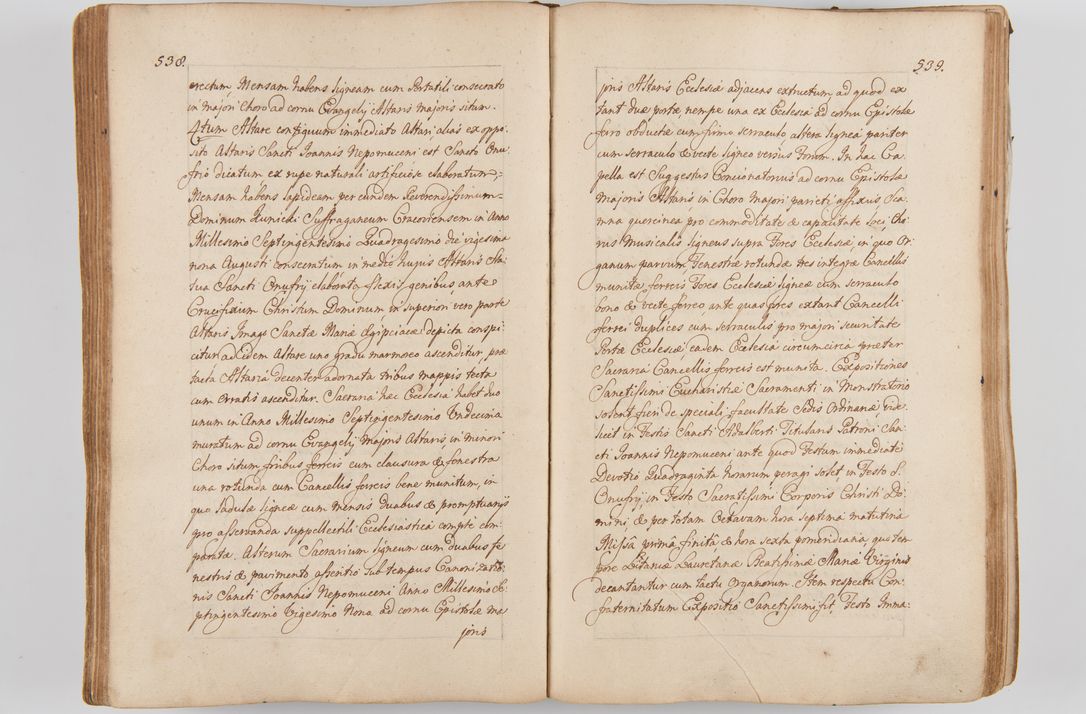 538.
erectum, Mensam habens ligneam cum Portatili consecrato
in majori Choro ad cornu Evangelij Altaris majoris situm.
4tum Altare contiguum immediato Altari alias ex oppo-
sito Altaris Sancti Joannis Nepomuceni est Sancto Onu-
frio dicatum ex rupe naturali artificiose elaboratum
Mensam habens lapideam per eundem Reverendissimum
Dominum Kunicki Suffraganeum Cracoviensem in Anno
Millesimo Septingentesimo Quadragesimo die vigesima
nona Augusti consecratum in medio hujus Altaris Sta-
tua Sancti Onufrij elaborata flexis genibus ante
Crucifixum Christum Dominum in superiori vero parte
Altaris Imago Sanctæ Mariæ Ægipciacæ depicta conspi-
citur, ad idem Altare uno gradu marmoreo ascenditur, præ-
facta Altaria decenter adornata tribus mappis tecta
cum ornatis ascenditur. Sacraria hæc Ecclesia habet duo
unum in Anno Millesimo Septingentesimo Undecimo
muratum ad cornu Evangelij Majoris Altaris in minori
Choro situm foribus ferreis cum clausura & fenestra
una rotunda cum Cancellis ferreis bene munitum, in
quo Laduæ ligneæ cum mensis Duabus & promptuarijs
pro asservanda suppellectili Ecclesiastica compte com-
paratæ. Alterum Sacrarium ligneum cum Duabus fe-
nestris & pavimento asseritio sub tempus Canonizatio-
nis Sancti Joannis Nepomuceni Anno Millesimo Se-
ptingentesimo Vigesimo Nono ad cornu Epistolæ ma-
joris
539.
joris Altaris Ecclesiæ adjacens extructum, ad quod ex-
tant duæ portæ, nempe una ex Ecclesia ad cornu Epistolæ
ferro obductæ cum firmo serraculo altera lignea pariter
cum serraculo & vecte ligneo versus Forum. In hac Ca-
pella est Suggestus Concionatorius ad cornu Epistolæ
Majoris Altaris in Choro Majori parieti affixus Sca-
mna quercinea pro commoditate & capacitate loci, Cho-
rus Musicalis ligneus supra Fores Ecclesiæ, in quo Or-
ganum parvum, Fenestræ rotundæ tres integræ Cancellis
munitæ ferreis Fores Ecclesiæ ligneæ cum serraculo
bono & vecte ferreo, ante quas fores extant Cancelli
ferrei duplices cum serraculis pro majori securitate
Portæ Ecclesiæ, eadem Ecclesia circumcirca præter
Sacraria Cancellis ferreis est munita. Expositiones
Sanctissimi Eucharistiæ Sacramenti in Monstratorio
solent fieri de speciali facultate Sedis Ordinariæ, vide-
licet in Festis Sancti Adalberti Titularis Patroni San-
cti Joannis Nepomuceni ante quod Festum immediate
Devotio Quadraginta horarum peragi solet, in Festo S.
Onufrij, in Festo Sacratissimi Corporis Christi Do-
mini, & per totam Octavam hora septima matutina
Missa prima finita & hora sexta pomeridiana, quo tem-
pore Litaniæ Lauretanæ Beatissimæ Mariæ Virginis
decantantur cum tactu Organorum. Item respectu Con-
fraternitatum Expositio Sanctissimi fit, Festo Imma-